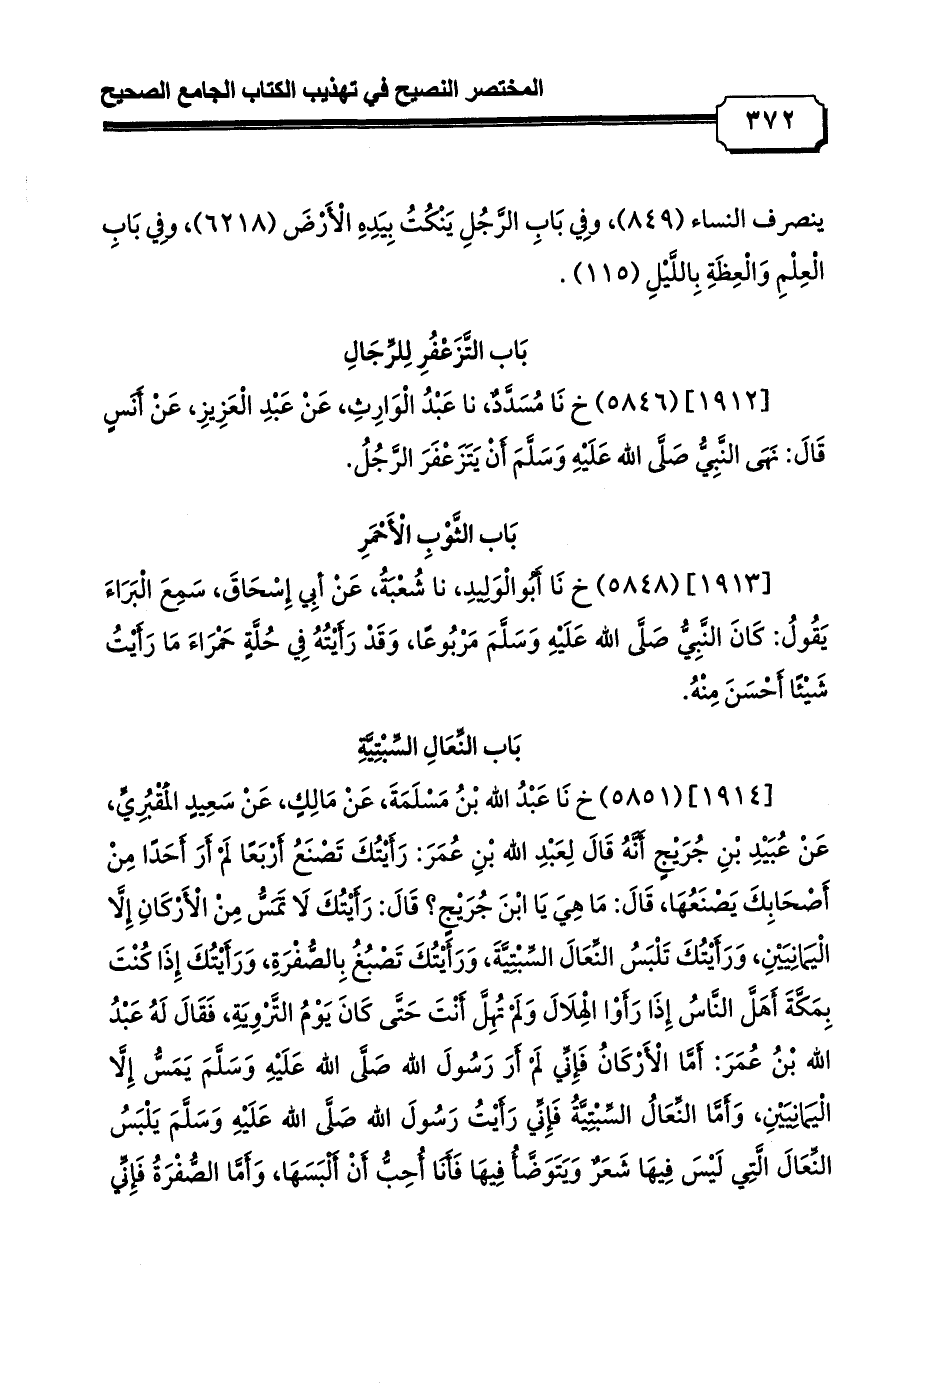 المختصر النصيح في تهذيب الكتاب الجامع الصحيح
٣٧٢
ينصرف النساء (٨٤٩)، وفِي بَابِ الرَّجُلِ يَنْكُتُ بِيَدِهِ الْأَرْضَ (٦٢١٨)، وفِي بَابِ
الْعِلْمِ وَالْعِظَةِ بِاللَّيْلِ (١١٥) .
بَاب التَّزَعْفُرِ لِلرِّجَالِ
[١٩١٢] (٥٨٤٦) خ نَا مُسَدَّدٌ، نا عَبْدُ الْوَارِثِ، عَنْ عَبْدِ الْعَزِيزِ، عَنْ أَنَسٍ
قَالَ: نَهَى النَّبِيُّ صَلَّى الله عَلَيْهِ وَسَلَّمَ أَنْ يَتَزَعْفَرَ الرَّجُلُ.
بَاب الثَّوْبِ الْأَحْمَرِ
[١٩١٣] (٥٨٤٨) خ نَا أَبُوالْوَلِيدِ، نا شُعْبَةُ، عَنْ أبِي إِسْحَاقَ، سَمِعَ الْبَرَاءَ
يَقُولُ: كَانَ النَّبِيُّ صَلَّى الله عَلَيْهِ وَسَلَّمَ مَرْبُوعًا، وَقَدْ رَأَيْتُهُ فِي حُلَّةٍ حَمْرَاءَ مَا رَأَيْتُ
شَيْئًا أَحْسَنَ مِنْهُ.
بَاب النِّعَالِ السِّبْتِيَّةِ
[١٩١٤] (٥٨٥١) خ نَا عَبْدُ الله بْنُ مَسْلَمَةَ، عَنْ مَالِكٍ، عَنْ سَعِيدٍ الْمَقْبُرِيِّ،
عَنْ عُبَيْدِ بْنِ جُرَيْجٍ أَنَّهُ قَالَ لِعَبْدِ الله بْنِ عُمَرَ: رَأَيْتُكَ تَصْنَعُ أَرْبَعًا لَمْ أَرَ أَحَدًا مِنْ
أَصْحَابِكَ يَصْنَعُهَا، قَالَ: مَا هِيَ يَا ابْنَ جُرَيْجٍ؟ قَالَ: رَأَيْتُكَ لَا تَمَسُّ مِنْ الْأَرْكَانِ إِلَّا
الْيَمَانِيَيْنِ، وَرَأَيْتُكَ تَلْبَسُ النِّعَالَ السِّبْتِيَّةَ، وَرَأَيْتُكَ تَصْبُغُ بِالصُّفْرَةِ، وَرَأَيْتُكَ إِذَا كُنْتَ
بِمَكَّةَ أَهَلَّ النَّاسُ إِذَا رَأَوْا الْهِلَالَ وَلَمْ تُهِلَّ أَنْتَ حَتَّى كَانَ يَوْمُ التَّرْوِيَةِ، فَقَالَ لَهُ عَبْدُ
الله بْنُ عُمَرَ: أَمَّا الْأَرْكَانُ فَإِنِّي لَمْ أَرَ رَسُولَ الله صَلَّى الله عَلَيْهِ وَسَلَّمَ يَمَسُّ إِلَّا
الْيَمَانِيَيْنِ، وَأَمَّا النِّعَالُ السِّبْتِيَّةُ فَإِنِّي رَأَيْتُ رَسُولَ الله صَلَّى الله عَلَيْهِ وَسَلَّمَ يَلْبَسُ
النِّعَالَ الَّتِي لَيْسَ فِيهَا شَعَرٌ وَيَتَوَضَّأُ فِيهَا فَأَنَا أُحِبُّ أَنْ أَلْبَسَهَا، وَأَمَّا الصُّفْرَةُ فَإِنِّي